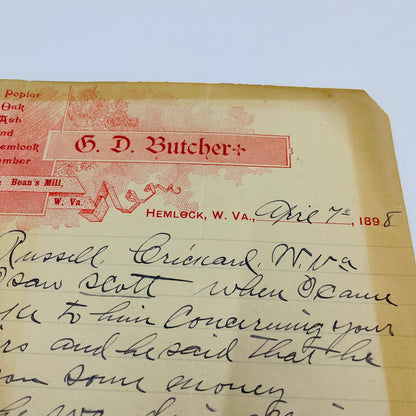 Poplar
Oak
Ash
and
Hemlock
G. D. Butcher
Bean's Mill,
W. Va.
HEMLOCK, W. VA., April 7th 1898
Russell, Crickard, W. Va
I saw Scott when I came
to him concerning your
and he said that he
some money